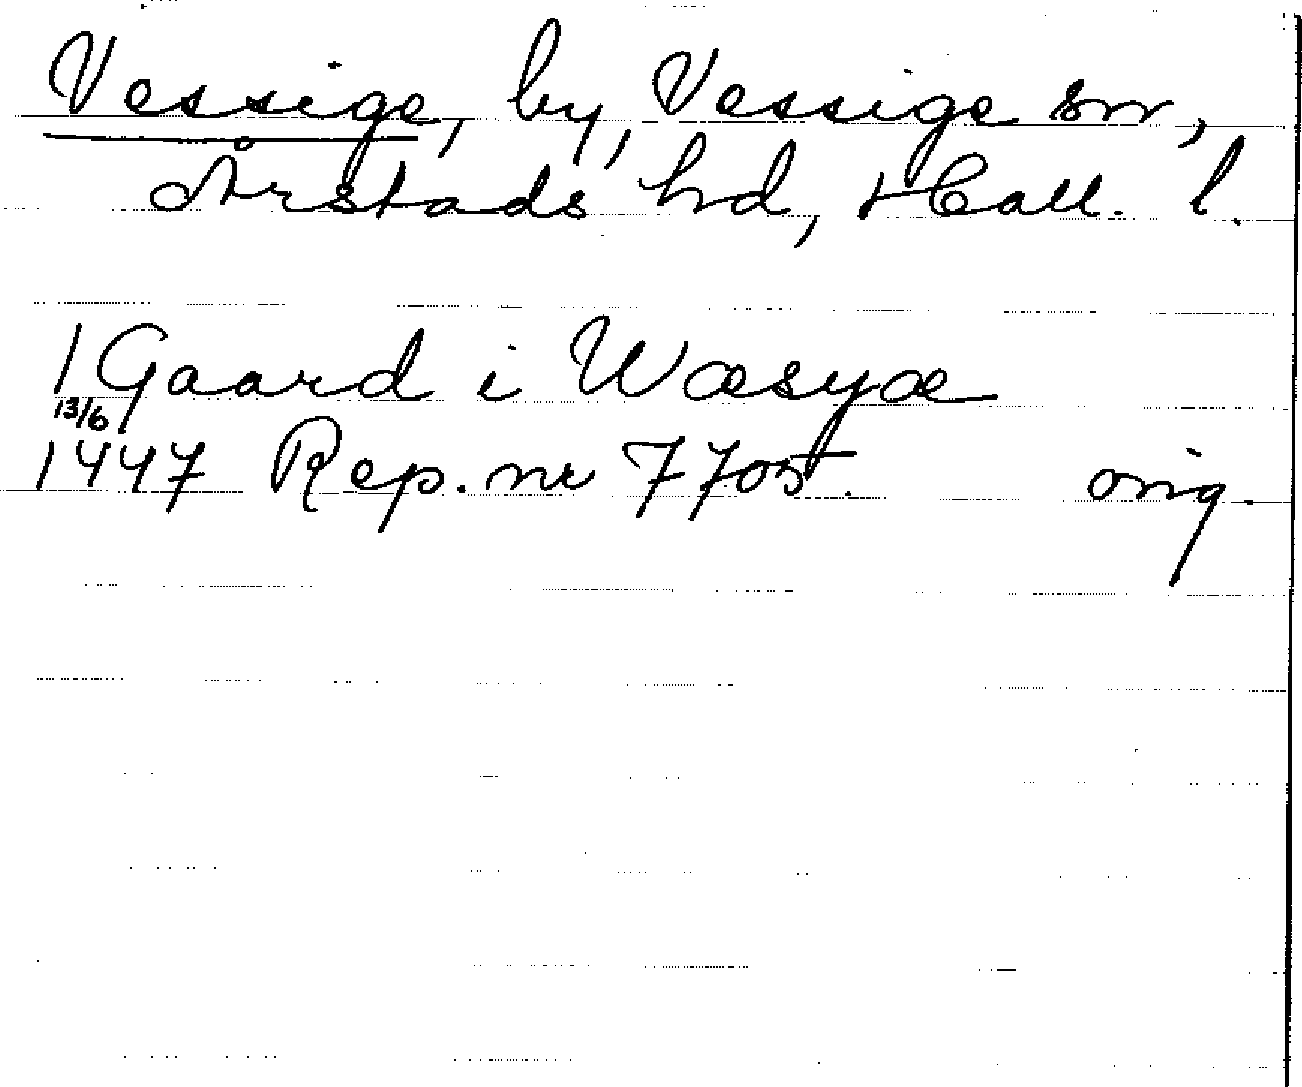 Vessige, by, Vessige sn,
Årstads hd, Hall. l.
1 Gaard i Wæsyæ
13/6
1447 Rep. nr 7705. orig.